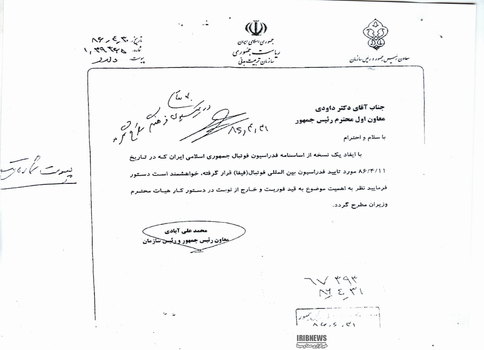 جمهوری اسلامی ایران
ریاست جمهوری
سازمان تربیت بدنی
تاریخ ۸۶،۴،۳۰
پیوست دارد
جناب آقای دکتر داودی
معاون اول محترم رئیس جمهور
با سلام و احترام
با ایفاد یک نسخه از اساسنامه فدراسیون فوتبال جمهوری اسلامی ایران که در تاریخ
۸۶/۴/۱۱ مورد تایید فدراسیون بین المللی فوتبال(فیفا) قرار گرفته، خواهشمند است دستور
فرمایید نظر به اهمیت موضوع به قید فوریت و خارج از نوبت در دستور کار هیات محترم
وزیران مطرح گردد.
محمد علی آبادی
معاون رئیس جمهور و رئیس سازمان
۶۷۳۹۳
۸۶،۴،۳۱
IRIBNEWS